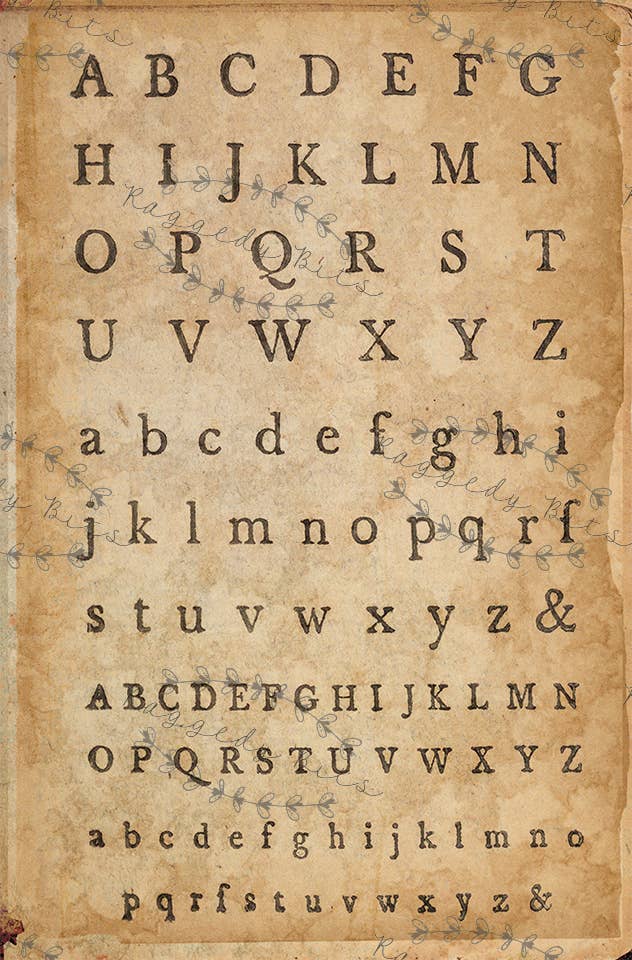 Raggedy Bits
A B C D E F G
H I J K L M N
Raggedy Bits
O P Q R S T
U V W X Y Z
a b c d e f g h i
Raggedy Bits
j k l m n o p q r ſ
s t u v w x y z &
A B C D E F G H I J K L M N
Raggedy Bits
O P Q R S T U V W X Y Z
a b c d e f g h i j k l m n o
p q r ſ s t u v w x y z &